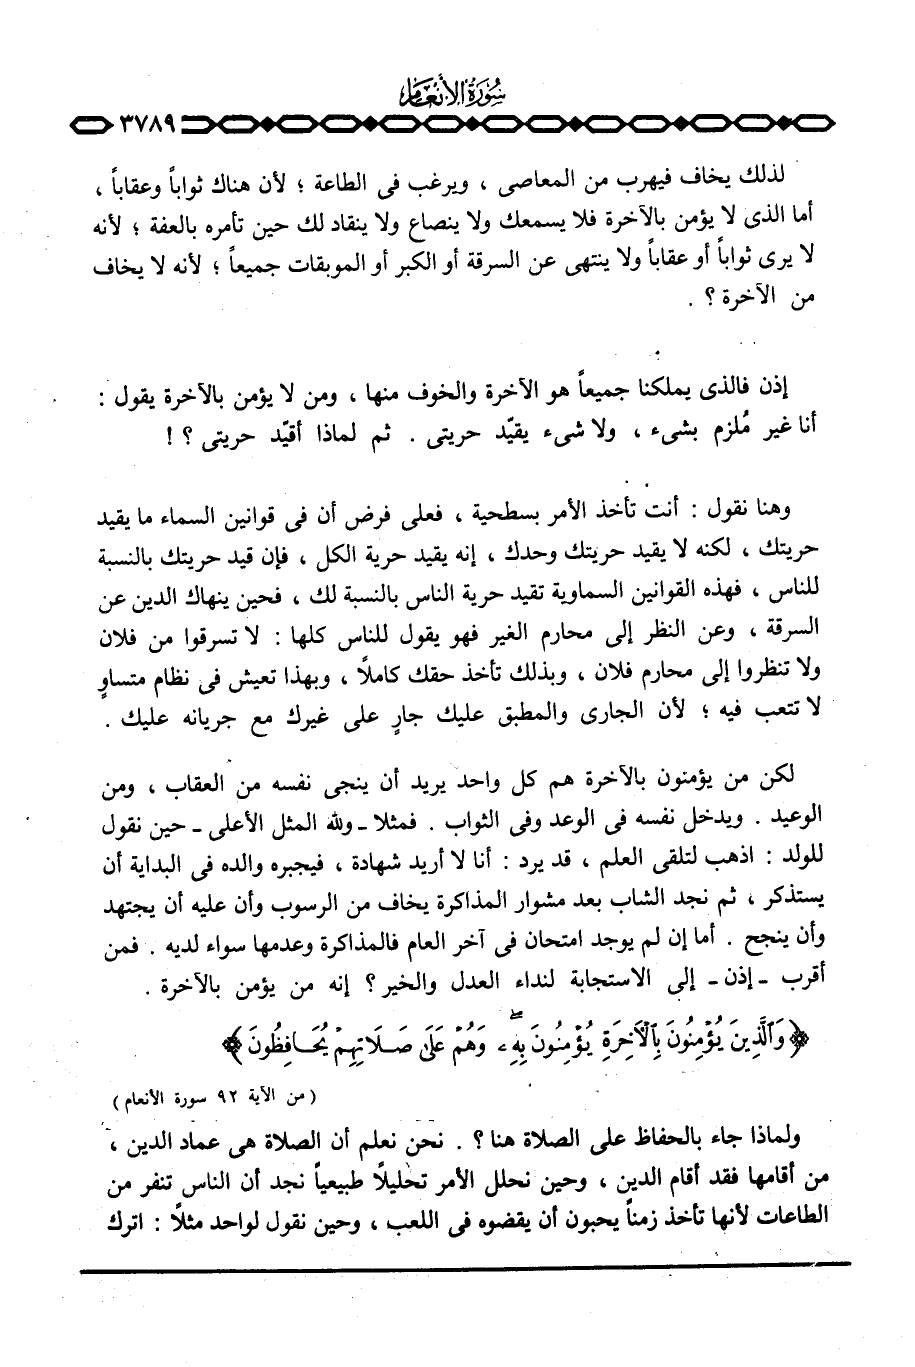 سورة الأنعام
٣٧٨٩
لذلك يخاف فيهرب من المعاصى ، ويرغب فى الطاعة ؛ لأن هناك ثواباً وعقاباً ،
أما الذى لا يؤمن بالآخرة فلا يسمعك ولا ينصاع ولا ينقاد لك حين تأمره بالعفة ؛ لأنه
لا يرى ثواباً أو عقاباً ولا ينتهى عن السرقة أو الكبر أو الموبقات جميعاً ؛ لأنه لا يخاف
من الآخرة ؟ .
إذن فالذى يملكنا جميعاً هو الآخرة والخوف منها ، ومن لا يؤمن بالآخرة يقول :
أنا غير مُلزم بشىء ، ولا شىء يقيّد حريتى . ثم لماذا أقيّد حريتى ؟ !
وهنا نقول : أنت تأخذ الأمر بسطحية ، فعلى فرض أن فى قوانين السماء ما يقيد
حريتك ، لكنه لا يقيد حريتك وحدك ، إنه يقيد حرية الكل ، فإن قيد حريتك بالنسبة
للناس ، فهذه القوانين السماوية تقيد حرية الناس بالنسبة لك ، فحين ينهاك الدين عن
السرقة ، وعن النظر إلى محارم الغير فهو يقول للناس كلها : لا تسرقوا من فلان
ولا تنظروا إلى محارم فلان ، وبذلك تأخذ حقك كاملاً ، وبهذا تعيش فى نظام متساوٍ
لا تتعب فيه ؛ لأن الجارى والمطبق عليك جارٍ على غيرك مع جريانه عليك .
لكن من يؤمنون بالآخرة هم كل واحد يريد أن ينجى نفسه من العقاب ، ومن
الوعيد . ويدخل نفسه فى الوعد وفى الثواب . فمثلا ـ ولله المثل الأعلى ـ حين نقول
للولد : اذهب لتلقى العلم ، قد يرد : أنا لا أريد شهادة ، فيجبره والده فى البداية أن
يستذكر ، ثم نجد الشاب بعد مشوار المذاكرة يخاف من الرسوب وأن عليه أن يجتهد
وأن ينجح . أما إن لم يوجد امتحان فى آخر العام فالمذاكرة وعدمها سواء لديه . فمن
أقرب ـ إذن ـ إلى الاستجابة لنداء العدل والخير ؟ إنه من يؤمن بالآخرة .
﴿ وَٱلَّذِينَ يُؤْمِنُونَ بِٱلْآخِرَةِ يُؤْمِنُونَ بِهِۦ ۖ وَهُمْ عَلَىٰ صَلَاتِهِمْ يُحَافِظُونَ ﴾
( من الآية ٩٢ سورة الأنعام )
ولماذا جاء بالحفاظ على الصلاة هنا ؟ . نحن نعلم أن الصلاة هى عماد الدين ،
من أقامها فقد أقام الدين ، وحين نحلل الأمر تحليلاً طبيعياً نجد أن الناس تنفر من
الطاعات لأنها تأخذ زمناً يحبون أن يقضوه فى اللعب ، وحين نقول لواحد مثلاً : اترك